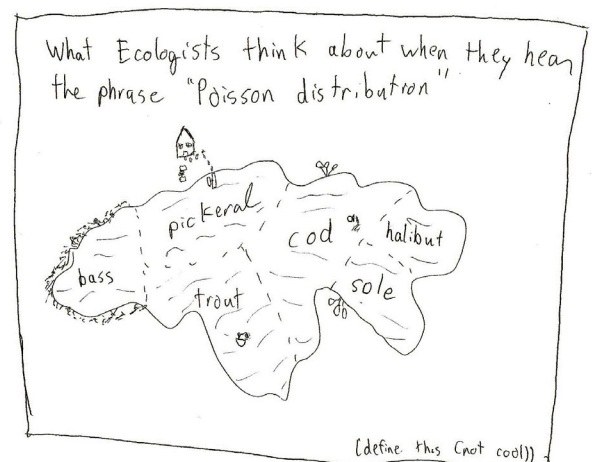 What Ecologists think about when they hear
the phrase "Poisson distribution"
pickeral
cod
halibut
bass
trout
sole
(define this (not cool))